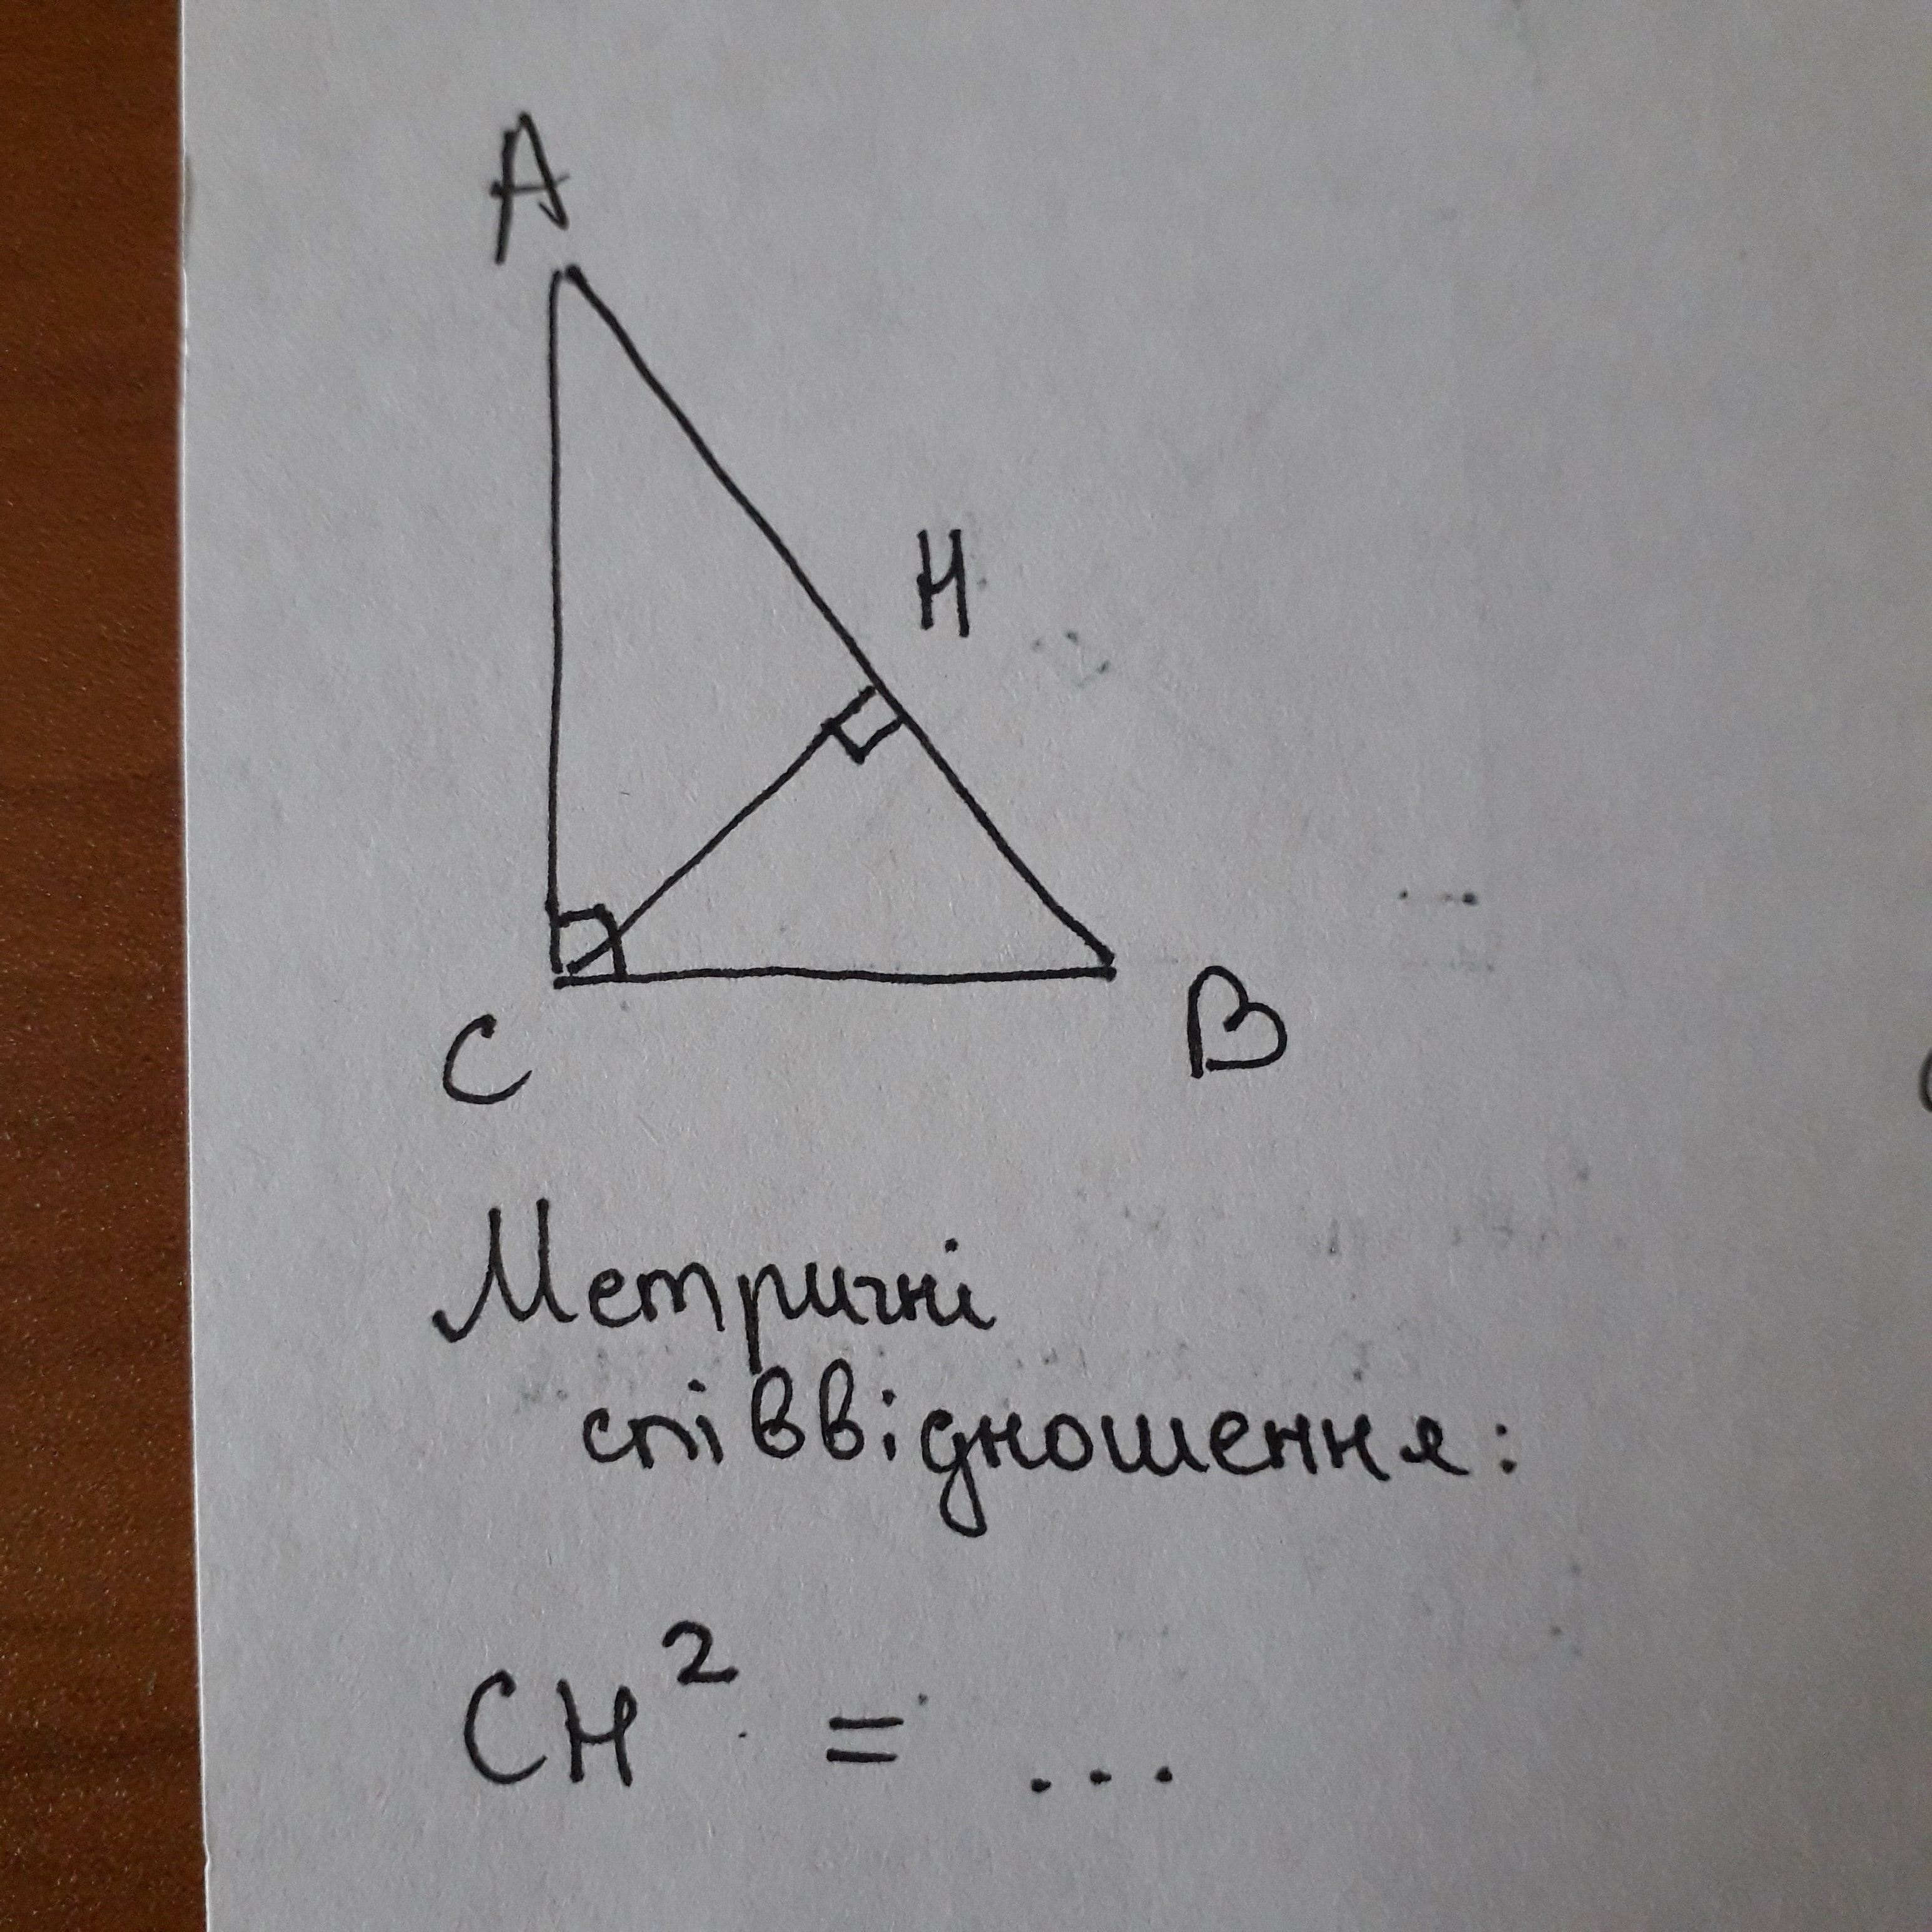 A
H
C
B
Метричні
співвідношення:
CH² = ...